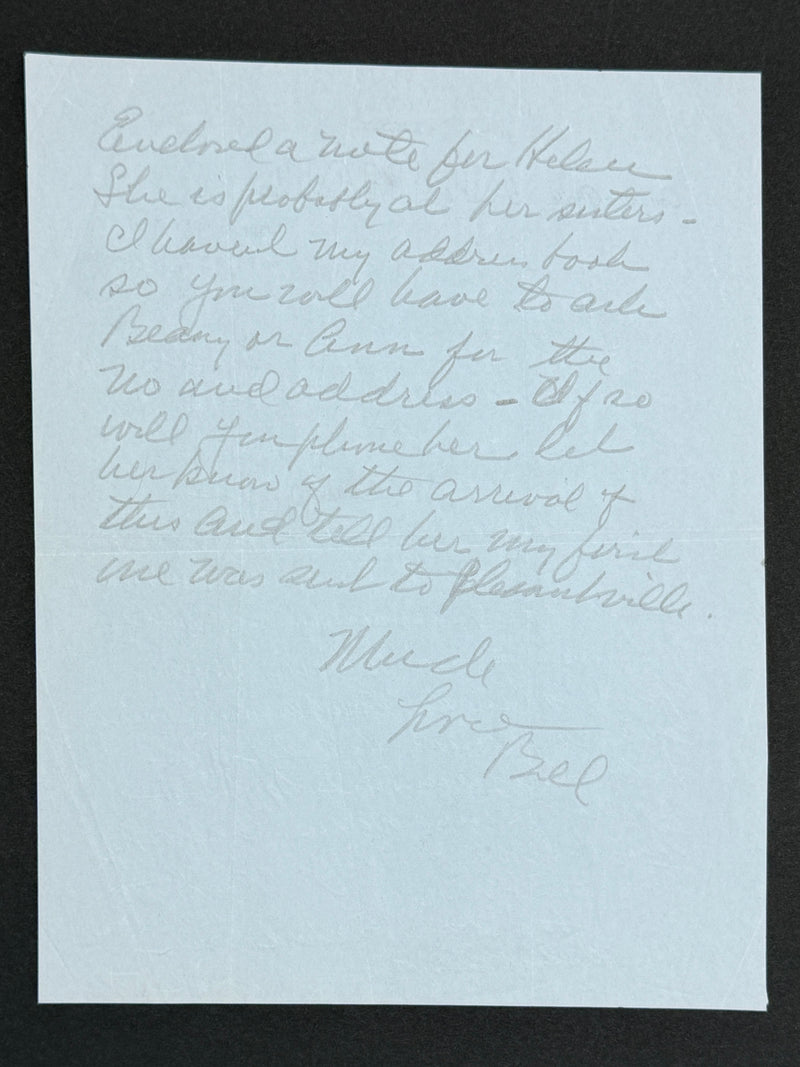 Enclosed a note for Helen
She is probably at her sisters -
I havent my address book
so you will have to ask
Beany or Ann for the
no and address - If so
will you phone her let
her know of the arrival of
this and tell her my first
one was sent to Plesantville.
Much
Love
Bill